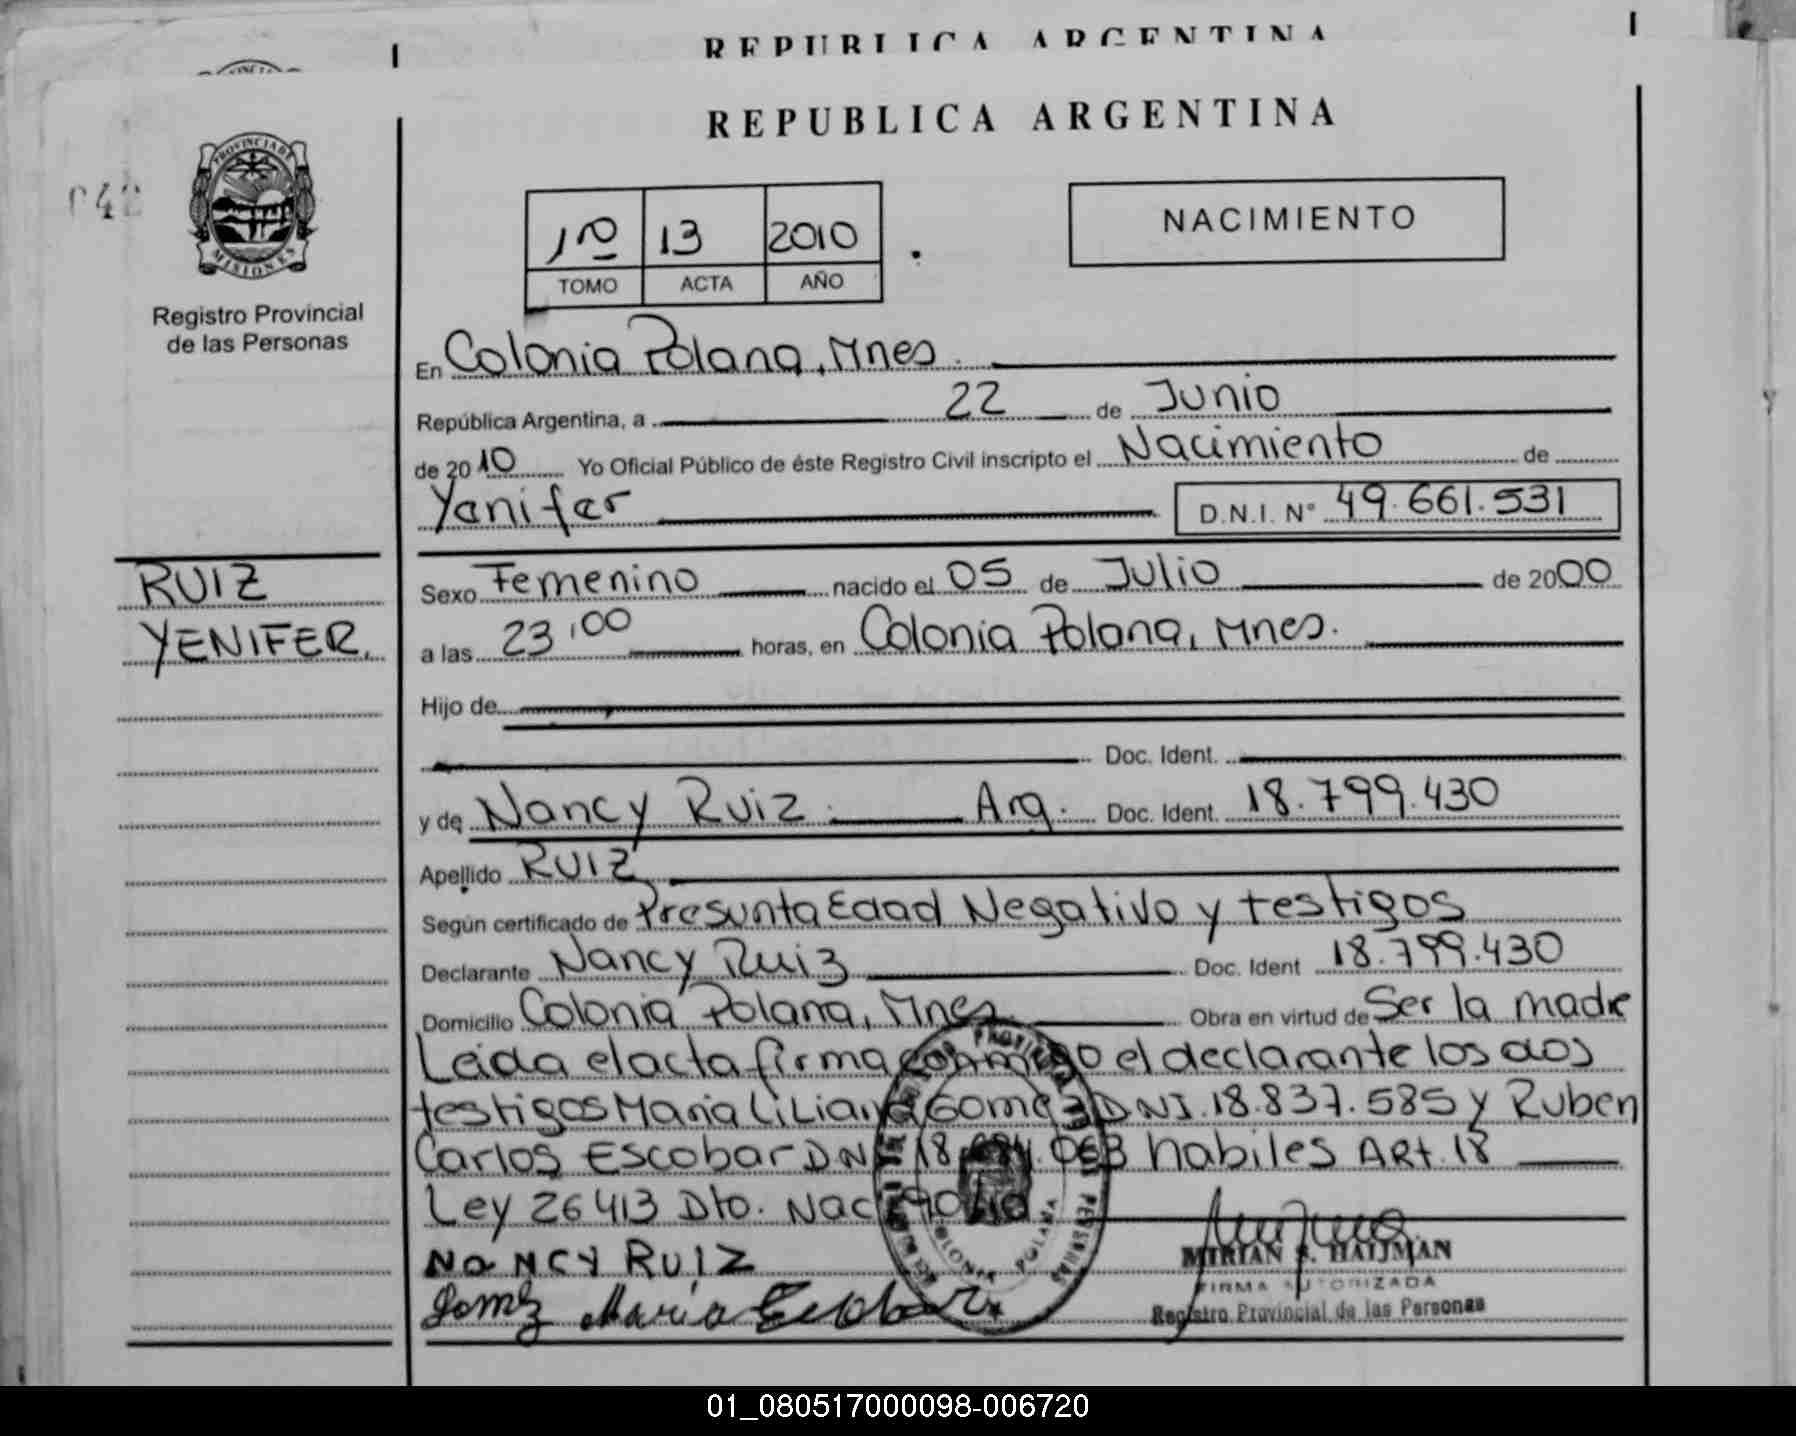 REPUBLICA ARGENTINA
REPUBLICA ARGENTINA
PROVINCIA DE
MISIONES
Registro Provincial
de las Personas
1º 13 2010
TOMO ACTA AÑO
NACIMIENTO
En Colonia Polana, Mnes.
República Argentina, a 22 de Junio
de 2010 Yo Oficial Público de éste Registro Civil inscripto el Nacimiento de
Yenifer D.N.I. Nº 49.661.531
RUIZ
YENIFER.
Sexo Femenino nacido el 05 de Julio de 2000
a las 23,00 horas, en Colonia Polana, Mnes.
Hijo de
Doc. Ident.
y de Nancy Ruiz. Arg. Doc. Ident. 18.799.430
Apellido RUIZ
Según certificado de Presunta Edad Negativo y testigos
Declarante Nancy Ruiz Doc. Ident 18.799.430
Domicilio Colonia Polana, Mnes Obra en virtud de Ser la madre
Leida el acta firma conmigo el declarante los dos
testigos Maria Liliana Gomez DNI. 18.837.585 y Ruben
Carlos Escobar DNI 18. habiles Art. 18
Ley 26413 Dto. Nac
NaNCY RUIZ
Gomez Maria Escobar
MIRIAN HAIJMAN
FIRMA AUTORIZADA
Registro Provincial de las Personas
COLONIA POLANA
01_080517000098-006720